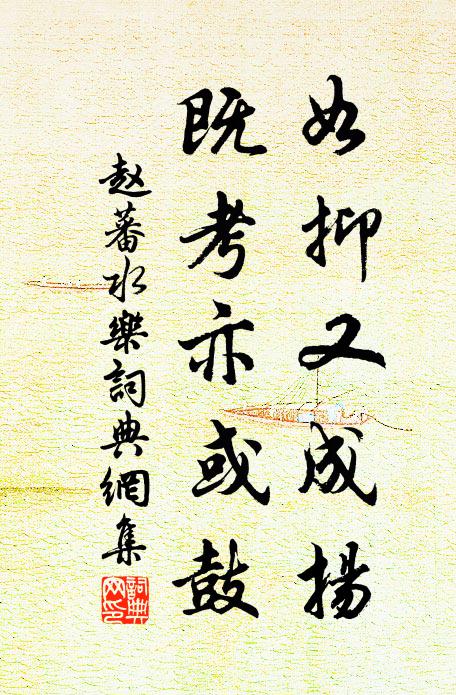 如抑又成揚
既考亦或鼓
赵蕃水樂詞典網集
詞典
网印